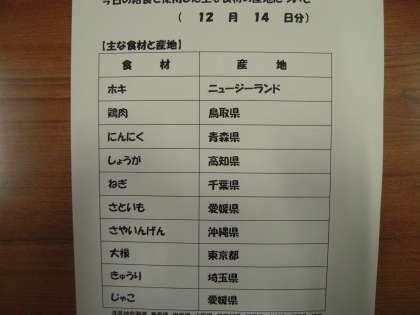 ( 12 月 14 日分)
【主な食材と産地】
食 材 産 地
ホキ ニュージーランド
鶏肉 鳥取県
にんにく 青森県
しょうが 高知県
ねぎ 千葉県
さといも 愛媛県
さやいんげん 沖縄県
大根 東京都
きゅうり 埼玉県
じゃこ 愛媛県